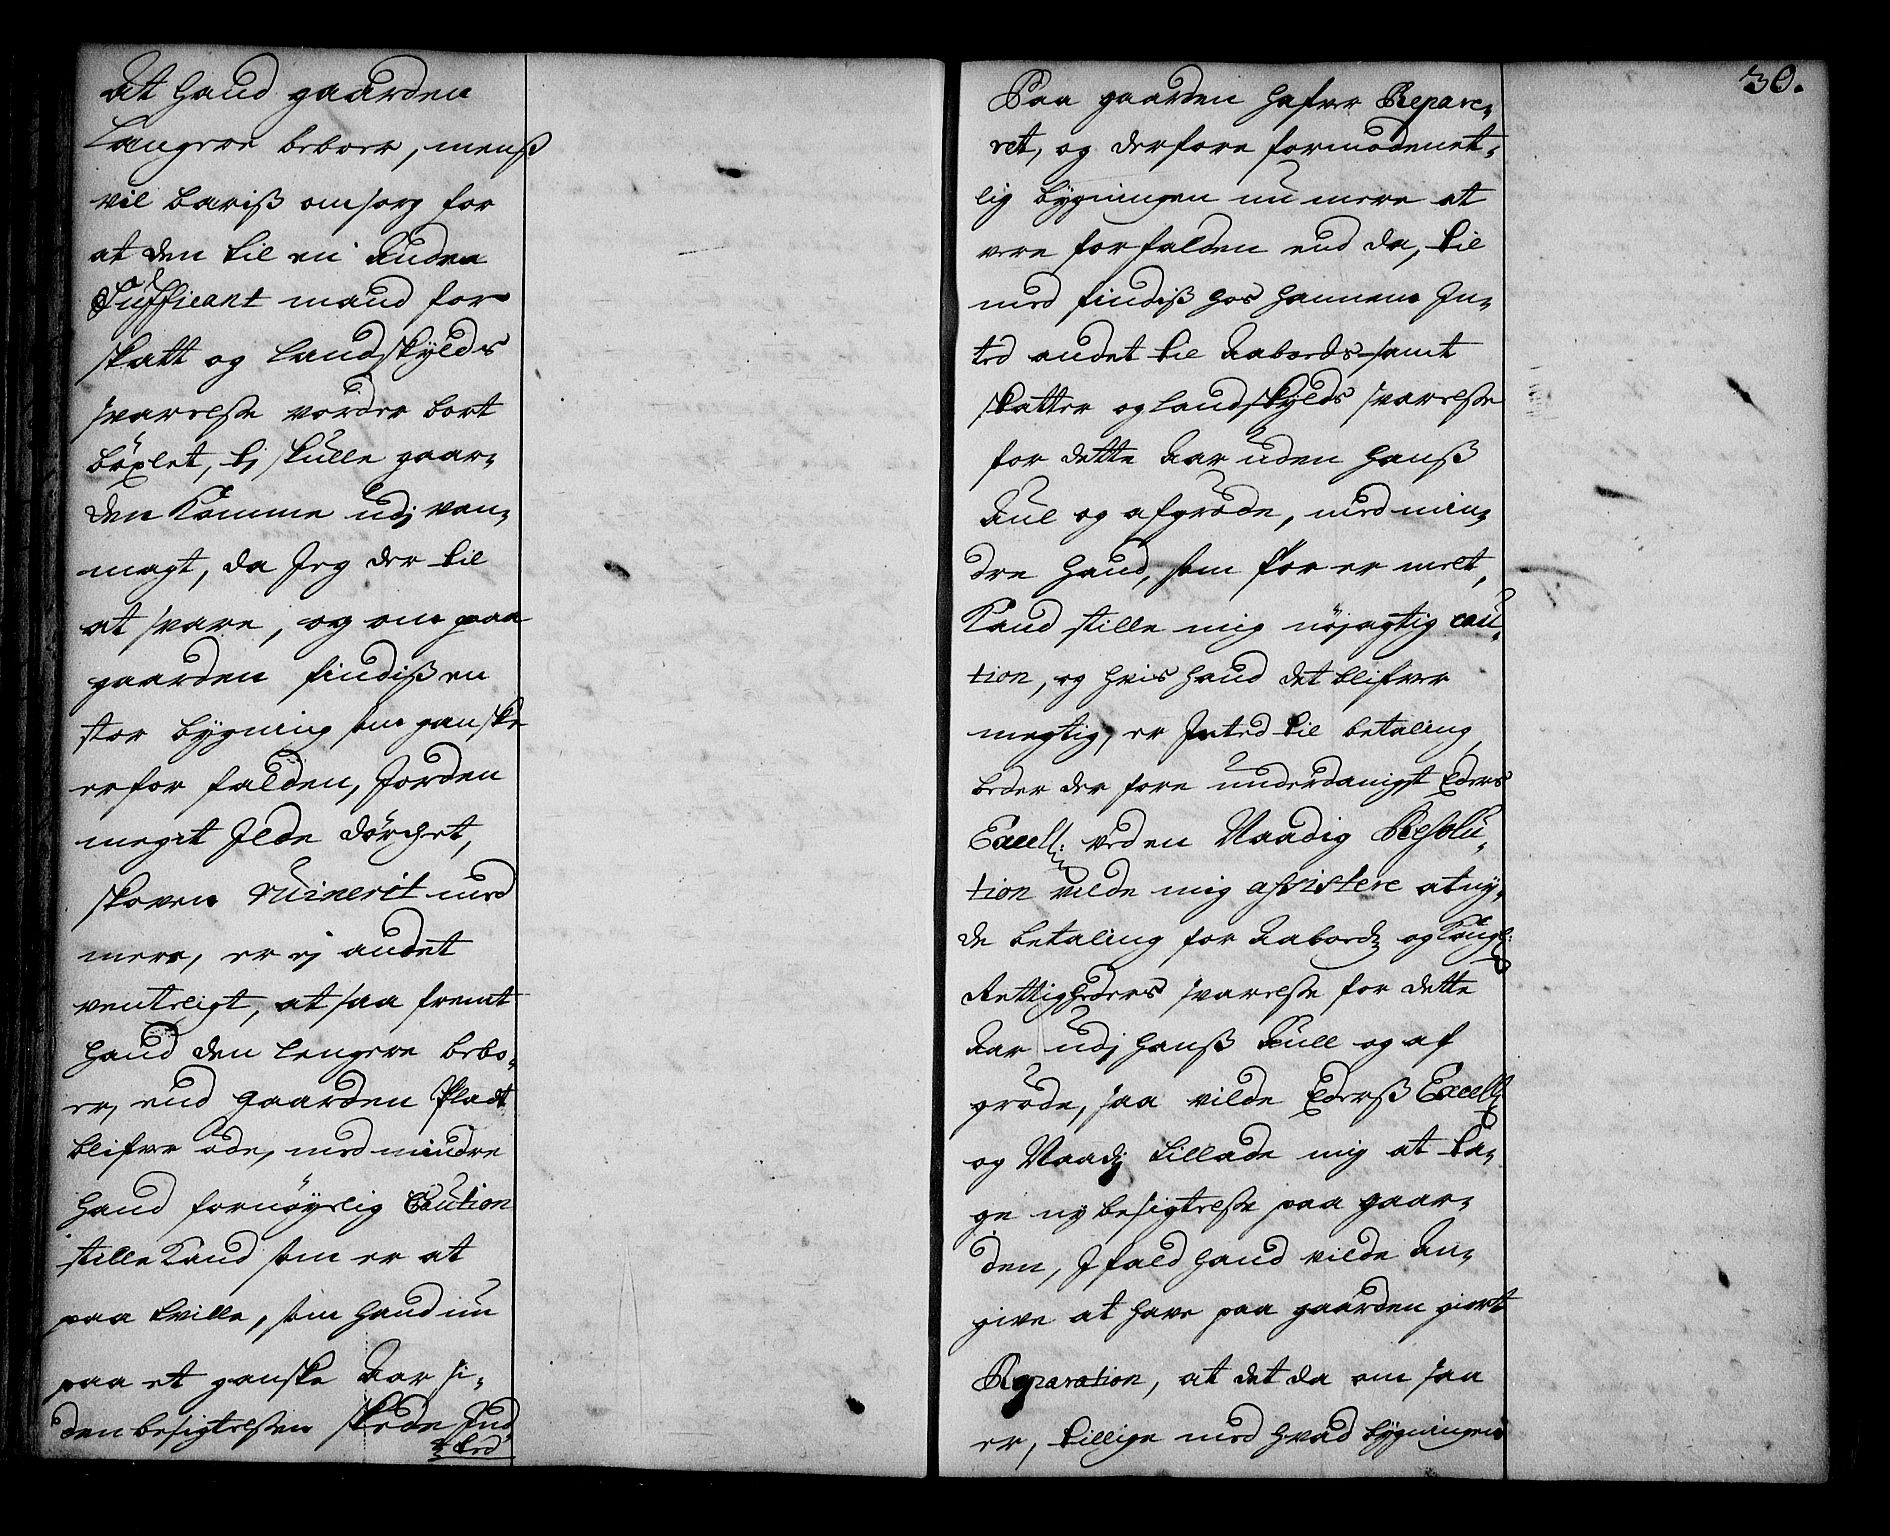 at hand gaarden
Længere beboer, menß
vil bæriß omsorg for
at den til en Anden
Sufficant mand for
skatt og Landskylds
svarelße vorder bort
böxlet, tj skulle gaar-
den komme udj van-
magt, da Jeg der til
at svare, og om paa
gaarden findiß en
stor bygning som ganske
er for falden, Jorden
meget Ilde dörchet,
skoven ruinerit med
mere, er ej andet
venteligt, at saa fremt
hand den Lengere bebo-
er, end gaarden Pladt
blifver öde, med mindre
hand fornöyelig Caution
stille kand som er at
paa tville, som hand nu
paa et ganske Aar si-
den besigtelßen skede Ind
ted
30.
Paa gaarden hafver Repare-
ret, og derfore formodenet-
lig bygningen nu mere at
vere forfalden end da, til
med findiß hos hannem In-
ted andet til Aabords samt
skatter og landskylds svarelße
for dette Aar uden hanß
Aul og afgröde, med min-
dre hand, som for er melt,
kand stille mig nöjagtig cau-
tion, og hvis hand det blifver
megtig, er Inted til betaling,
beder der fore underdanigst Eders
Excell: ved en Naadig Resolu-
tion vilde mig assistere at ny-
de betaling for Aabord og Kongl:
Rettigheders svarelße for dette
Aar udj hanß Aull og af
gröde, saa vilde Ederß Excell:
og Naadig tillade mig at ta-
ge ny besigtelße paa gaar-
den, Ifald hand vilde An-
give at have paa gaarden giort
Reparation, at det da om saa
er, tillige med hvad bygningen